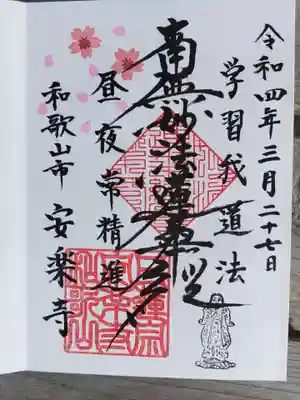 令和四年三月二十七日
学習我道法
南無妙法蓮華経
昼夜常精進
和歌山市 安楽寺
日蓮宗
和歌山